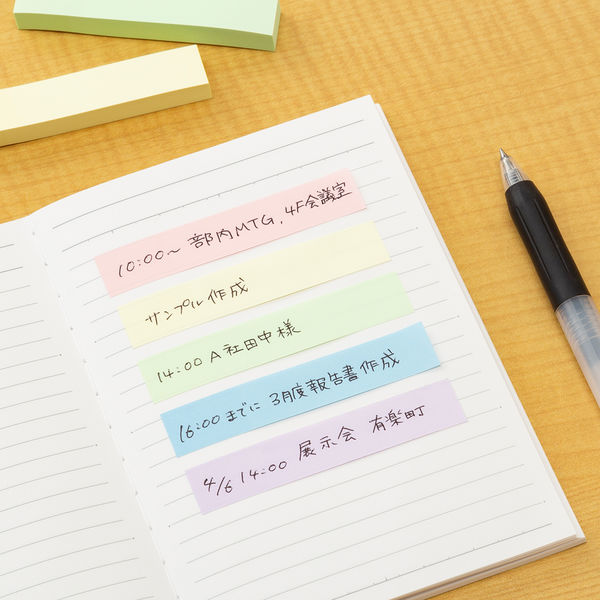 10:00〜 部内MTG, 4F会議室
サンプル作成
14:00 A社田中様
16:00までに 3月度報告書作成
4/6 14:00 展示会 有楽町